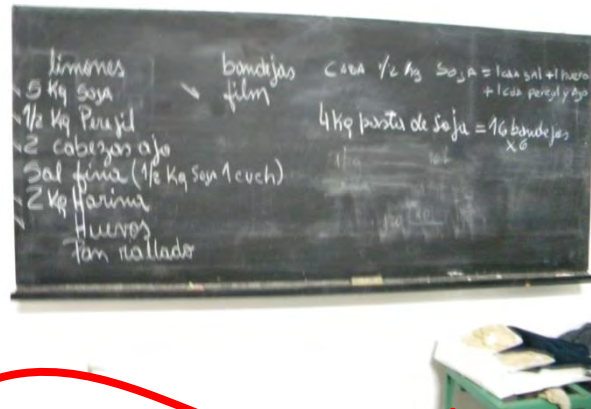 limones
5 Kg Soja
1/2 Kg Perejil
2 cabezas ajo
Sal fina (1/2 Kg Soja 1 cuch)
2 Kg Harina
Huevos
Pan rallado
bandejas
film
CADA 1/2 Kg SOJA = 1 cda sal + 1 huevo
+ 1 cda perejil y ajo
4 Kg pasta de soja = 16 bandejas
x6